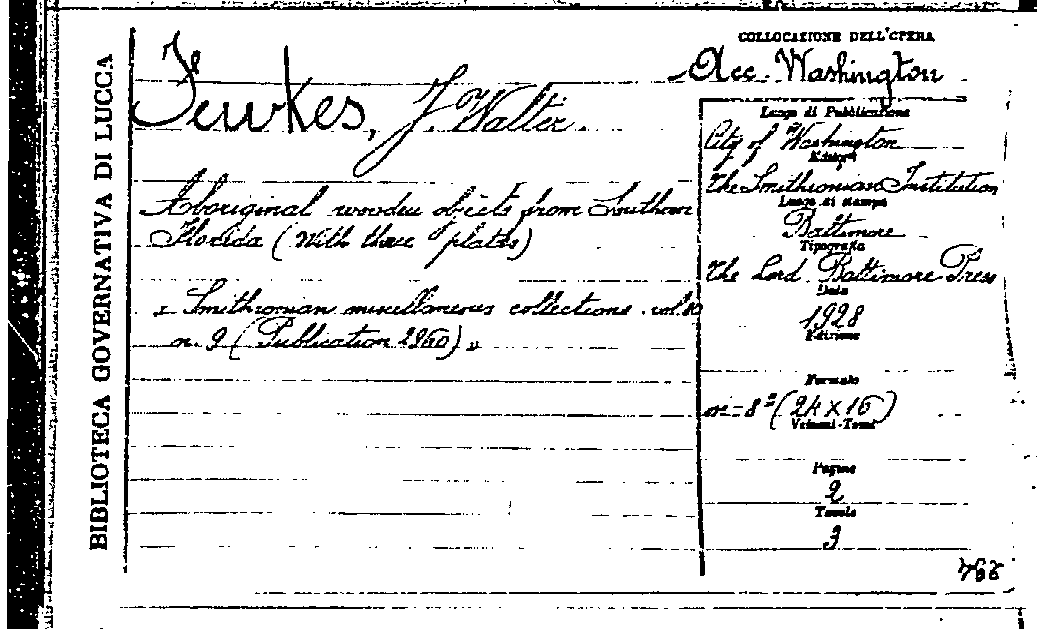 BIBLIOTECA GOVERNATIVA DI LUCCA
COLLOCAZIONE DELL'OPERA
Acc. Washington
Fewkes, J. Walter.
Aboriginal wooden objects from Southern
Florida (With three plates)
« Smithsonian miscellaneous collections. vol. 80
n. 9 (Publication 2960) »
Luogo di Pubblicazione
City of Washington
Editore
The Smithsonian Institution
Luogo di stampa
Baltimore
Tipografia
The Lord Baltimore Press
Data
1928
Edizione
Formato
in-8º (24 x 16)
Volumi-Tomi
Pagine
2
Tavole
3